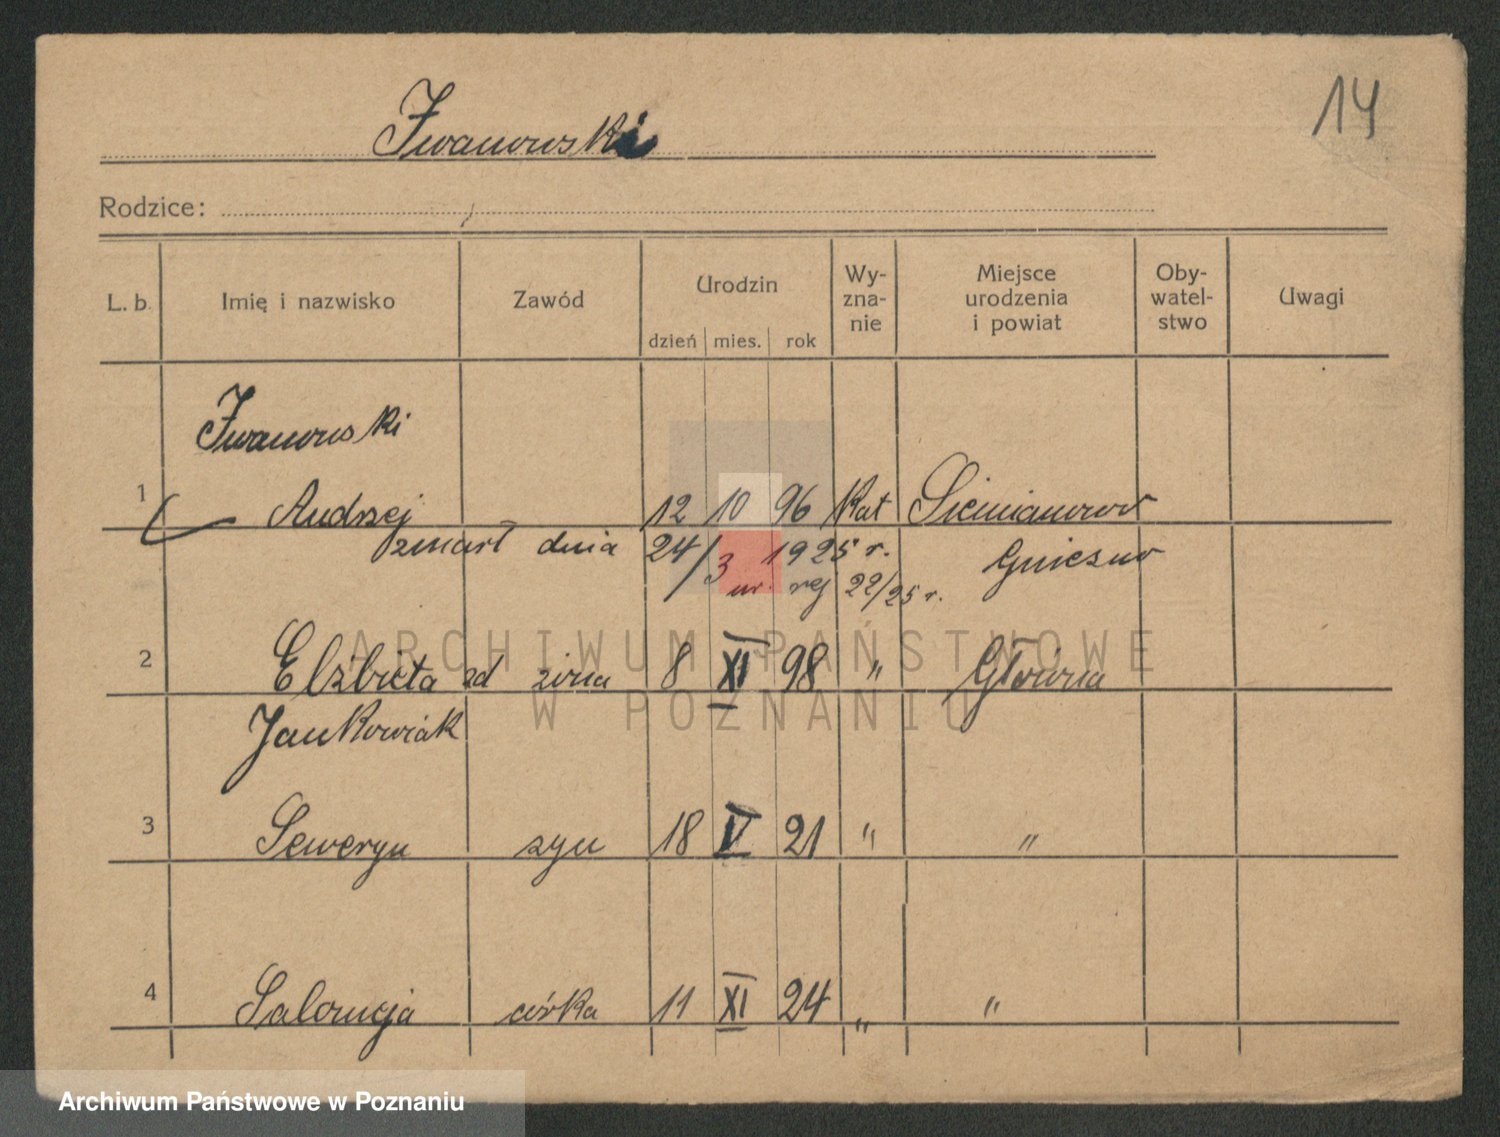 Iwanowski
14
Rodzice:
L. b. Imię i nazwisko Zawód Urodzin dzień mies. rok Wy-zna-nie Miejsce urodzenia i powiat Oby-watel-stwo Uwagi
Iwanowski
1 Andrzej 12 10 96 Kat Siemianowo
zmarł dnia 24/3 1925 r. Gniezno
nr. rej 22/25 r.
2 Elżbieta zd żona 8 XI 98 " Główna
Jankowiak
3 Seweryn syn 18 V 21 " "
4 Salomeja córka 11 XI 24 " "
ARCHIWUM PAŃSTWOWE
W POZNANIU
Archiwum Państwowe w Poznaniu